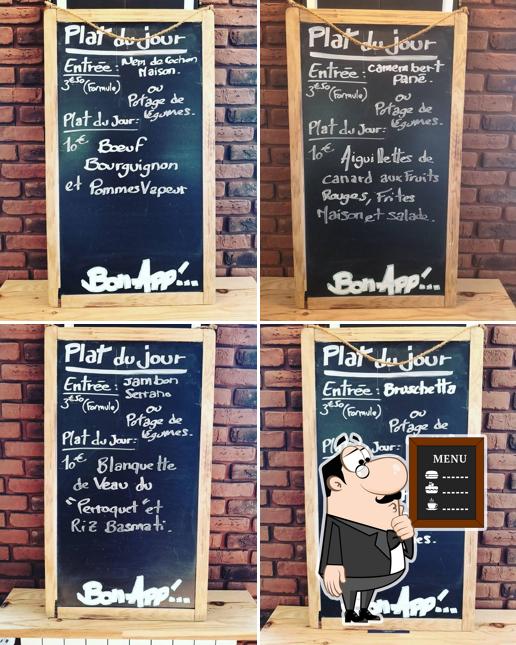 Plat du jour
Entrée : Nem de Cochon
3€50 (Formule) Maison.
ou
Potage de
légumes.
Plat du Jour :
10€ Bœuf
Bourguignon
et Pommes Vapeur
Bon App'...
Plat du jour
Entrée : camembert
3€50 (Formule) pané.
ou
Potage de
légumes.
Plat du Jour :
10€ Aiguillettes de
canard aux Fruits
Rouges, Frites
Maison et salade.
Bon App'...
Plat du jour
Entrée : Jambon
3€50 (Formule) Serrano
ou
Potage de
légumes.
Plat du Jour :
10€ Blanquette
de Veau du
"Perroquet" et
Riz Basmati.
Bon App'...
Plat du jour
Entrée : Bruschetta
3€50 (Formule)
ou
Potage de
MENU